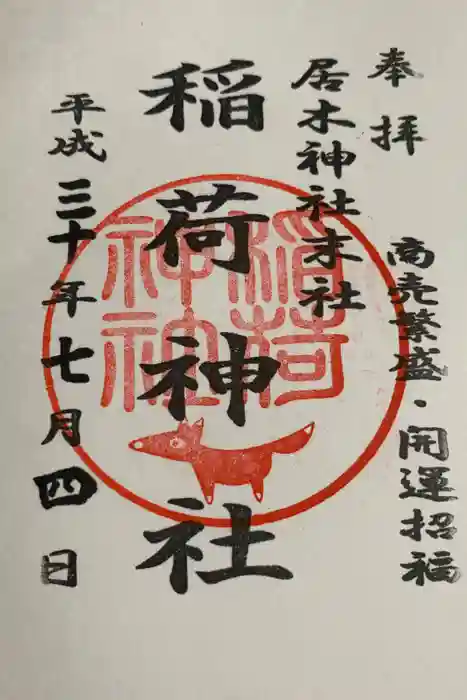 奉拝
商売繁盛・開運招福
居木神社末社
稲荷神社
稲荷
神社
平成三十年七月四日